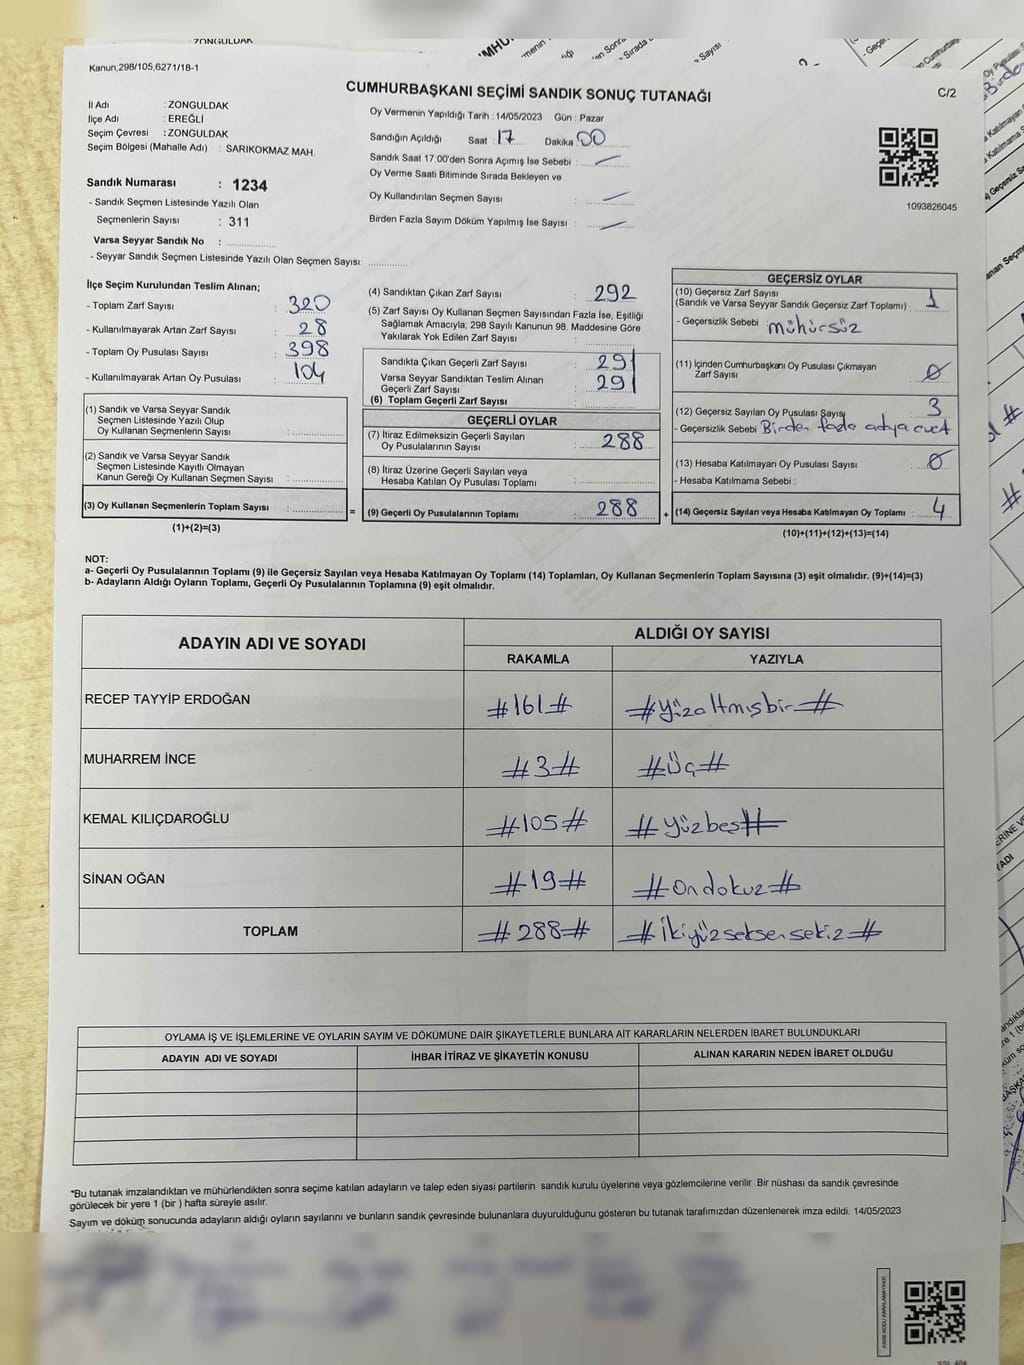 ZONGULDAK
Kanun;298/105,6271/18-1
CUMHURBAŞKANI SEÇİMİ SANDIK SONUÇ TUTANAĞI
C/2
İl Adı : ZONGULDAK
İlçe Adı : EREĞLİ
Seçim Çevresi : ZONGULDAK
Seçim Bölgesi (Mahalle Adı) : SARIKOKMAZ MAH.
Sandık Numarası : 1234
- Sandık Seçmen Listesinde Yazılı Olan
Seçmenlerin Sayısı : 311
Varsa Seyyar Sandık No :
- Seyyar Sandık Seçmen Listesinde Yazılı Olan Seçmen Sayısı:
Oy Vermenin Yapıldığı Tarih : 14/05/2023 Gün : Pazar
Sandığın Açıldığı Saat : 17 Dakika : 00
Sandık Saat 17.00'den Sonra Açımış İse Sebebi : —
Oy Verme Saati Bitiminde Sırada Bekleyen ve
Oy Kullandırılan Seçmen Sayısı : —
Birden Fazla Sayım Döküm Yapılmış İse Sayısı : —
1093826045
İlçe Seçim Kurulundan Teslim Alınan;
- Toplam Zarf Sayısı : 320
- Kullanılmayarak Artan Zarf Sayısı : 28
- Toplam Oy Pusulası Sayısı : 398
- Kullanılmayarak Artan Oy Pusulası : 104
(1) Sandık ve Varsa Seyyar Sandık
Seçmen Listesinde Yazılı Olup
Oy Kullanan Seçmenlerin Sayısı :
(2) Sandık ve Varsa Seyyar Sandık
Seçmen Listesinde Kayıtlı Olmayan
Kanun Gereği Oy Kullanan Seçmen Sayısı :
(3) Oy Kullanan Seçmenlerin Toplam Sayısı : =
(1)+(2)=(3)
(4) Sandıktan Çıkan Zarf Sayısı : 292
(5) Zarf Sayısı Oy Kullanan Seçmen Sayısından Fazla İse, Eşitliği
Sağlamak Amacıyla; 298 Sayılı Kanunun 98. Maddesine Göre
Yakılarak Yok Edilen Zarf Sayısı :
Sandıkta Çıkan Geçerli Zarf Sayısı : 291
Varsa Seyyar Sandıktan Teslim Alınan
Geçerli Zarf Sayısı : 291
(6) Toplam Geçerli Zarf Sayısı :
GEÇERLİ OYLAR
(7) İtiraz Edilmeksizin Geçerli Sayılan
Oy Pusulalarının Sayısı : 288
(8) İtiraz Üzerine Geçerli Sayılan veya
Hesaba Katılan Oy Pusulası Toplamı :
(9) Geçerli Oy Pusulalarının Toplamı : 288 +
GEÇERSİZ OYLAR
(10) Geçersiz Zarf Sayısı
(Sandık ve Varsa Seyyar Sandık Geçersiz Zarf Toplamı) : 1
- Geçersizlik Sebebi : mühürsüz
(11) İçinden Cumhurbaşkanı Oy Pusulası Çıkmayan
Zarf Sayısı : 0
(12) Geçersiz Sayılan Oy Pusulası Sayısı : 3
- Geçersizlik Sebebi : Birden fazla adya evet
(13) Hesaba Katılmayan Oy Pusulası Sayısı : 0
- Hesaba Katılmama Sebebi :
(14) Geçersiz Sayılan veya Hesaba Katılmayan Oy Toplamı : 4
(10)+(11)+(12)+(13)=(14)
NOT:
a- Geçerli Oy Pusulalarının Toplamı (9) ile Geçersiz Sayılan veya Hesaba Katılmayan Oy Toplamı (14) Toplamları, Oy Kullanan Seçmenlerin Toplam Sayısına (3) eşit olmalıdır. (9)+(14)=(3)
b- Adayların Aldığı Oyların Toplamı, Geçerli Oy Pusulalarının Toplamına (9) eşit olmalıdır.
ADAYIN ADI VE SOYADI
ALDIĞI OY SAYISI
RAKAMLA YAZIYLA
RECEP TAYYİP ERDOĞAN #161# #Yüzaltmışbir#
MUHARREM İNCE #3# #Üç#
KEMAL KILIÇDAROĞLU #105# #Yüzbeş#
SİNAN OĞAN #19# #Ondokuz#
TOPLAM #288# #İkiyüzseksensekiz#
OYLAMA İŞ VE İŞLEMLERİNE VE OYLARIN SAYIM VE DÖKÜMÜNE DAİR ŞİKAYETLERLE BUNLARA AİT KARARLARIN NELERDEN İBARET BULUNDUKLARI
ADAYIN ADI VE SOYADI İHBAR İTİRAZ VE ŞİKAYETİN KONUSU ALINAN KARARIN NEDEN İBARET OLDUĞU
*Bu tutanak imzalandıktan ve mühürlendikten sonra seçime katılan adayların ve talep eden siyasi partilerin sandık kurulu üyelerine veya gözlemcilerine verilir .Bir nüshası da sandık çevresinde
görülecek bir yere 1 (bir ) hafta süreyle asılır.
Sayım ve döküm sonucunda adayların aldığı oyların sayılarını ve bunların sandık çevresinde bulunanlara duyurulduğunu gösteren bu tutanak tarafımızdan düzenlenerek imza edildi. 14/05/2023